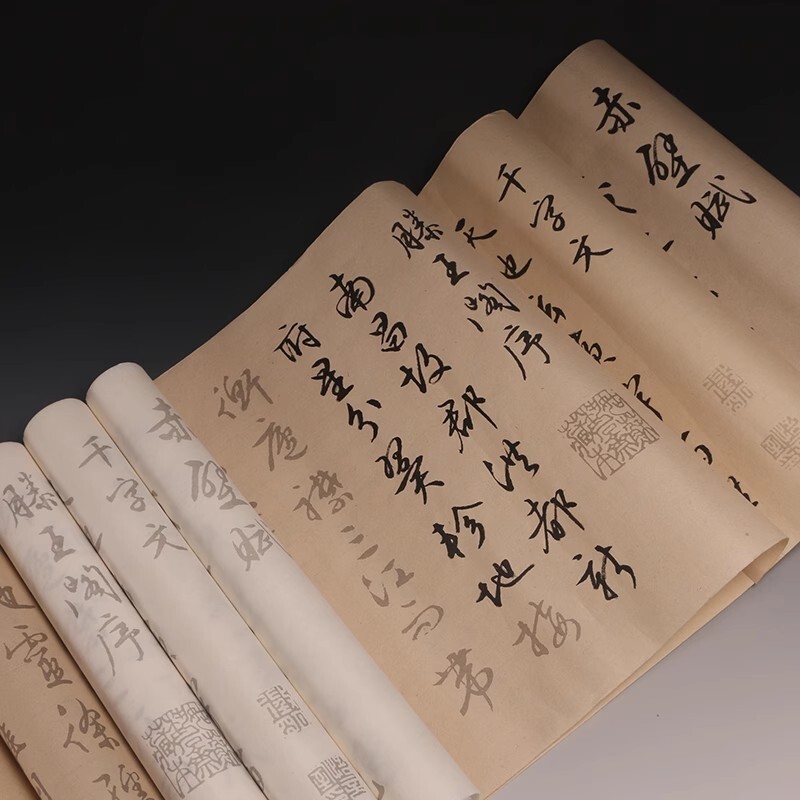 赤壁赋
千字文
天地玄黄
滕王阁序
南昌故郡洪都新
府星分翼轸地接
衡庐襟三江而带
赤壁赋
千字文
滕王阁序
地灵徐孺